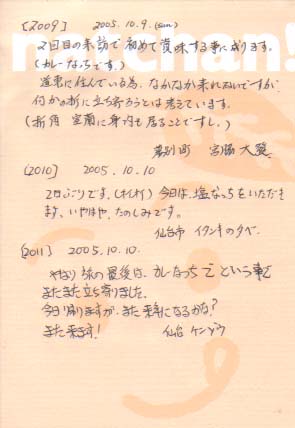 [2009] 2005.10.9.(sun)
natchan!
2回目の来訪で初めて賞味する事に成ります。
(カレーなっちです。)
道東に住んでいる為、なかなか来れないですが、
何かの折に立ち寄ろうとは考えています。
(折角 室蘭に身内も居ることですし。)
幕別町 宮脇大
[2010] 2005.10.10
2日ぶりです。今日は、塩なっちをいただき
ます、いやはや、たのしみです。
仙台市 イタンキの夕べ.
[2011] 2005.10.10.
やはり旅の最後は、カレなっちで という事で
またまた立ち寄りました。
今日帰りますが、また来年になるかな?
また来ます! 仙台 ケンゾウ